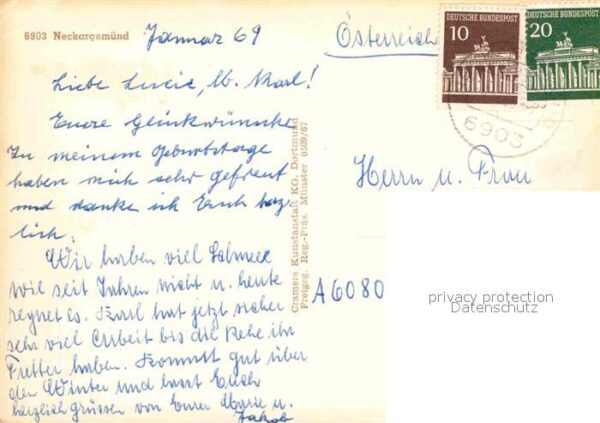 6903 Neckargemünd
Januar 69
Österreich
DEUTSCHE BUNDESPOST
10
DEUTSCHE BUNDESPOST
20
6903
Liebe Lucie, lb. Karl!
Eure Glückwünsche
zu meinem Geburtstage
haben mich sehr gefreut
und danke ich Euch herz
lich.
Wir haben viel Schnee
wie seit Jahren nicht u. heute
regnet es. Karl hat jetzt sicher
sehr viel Arbeit bis die Rehe ihr
Futter haben. Kommt gut über
den Winter und lasst Euch
herzlich grüssen von Eurer Marie u.
Jakob
Cramers Kunstanstalt KG. Dortmund
Freigeg. Reg.-Präs. Münster 0509/67
Herrn u. Frau
A6080
privacy protection
Datenschutz